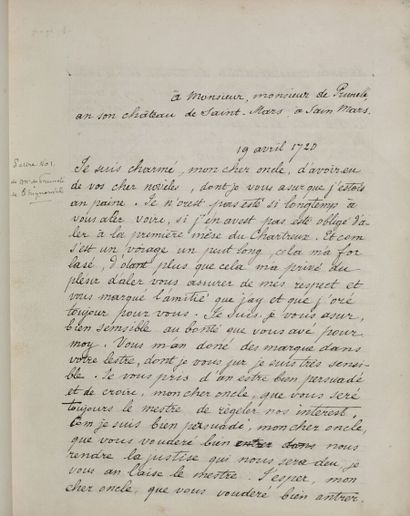 à Monsieur, monsieur de Prunelé,
an son château de Saint-Mars, à Sain Mars.
19 avril 1720
Je suis charmé, mon cher oncle, d'avoir eu
de vos cher novéles, dont je vous asur que j'estois
an paine. Je n'orest pas esté si longtemp à
vous aler voire, si j'en avest pas esté oblige d'a-
ler à la première mése du Chartreux. Et com
s'est un voiage un peut long, cela ma for
lasé, d'otant plus que cela ma privé du
plesir d'aler vous assurer de mes respect et
vous marqué l'amitié que jay et que j'oré
toujour pour vous. Je suis, je vous asur,
bien sensible au bonté que vous avé pour
moy. Vous m'an doné des marque dans
votre lestre, dont je vous jur je suis très sensi-
ble. Je vous pris d'an estre bien persuadé
et de croire, mon cher oncle, que vous seré
toujours le mestre de régeler nos interest,
Com je suis bien persuadé, mon cher oncle,
que vous vouderé bien nous
rendre la justise qui nous sera deu, je
vous an laise le mestre. J'esper, mon
cher oncle, que vous vouderé bien antrer
Lettre No 1.